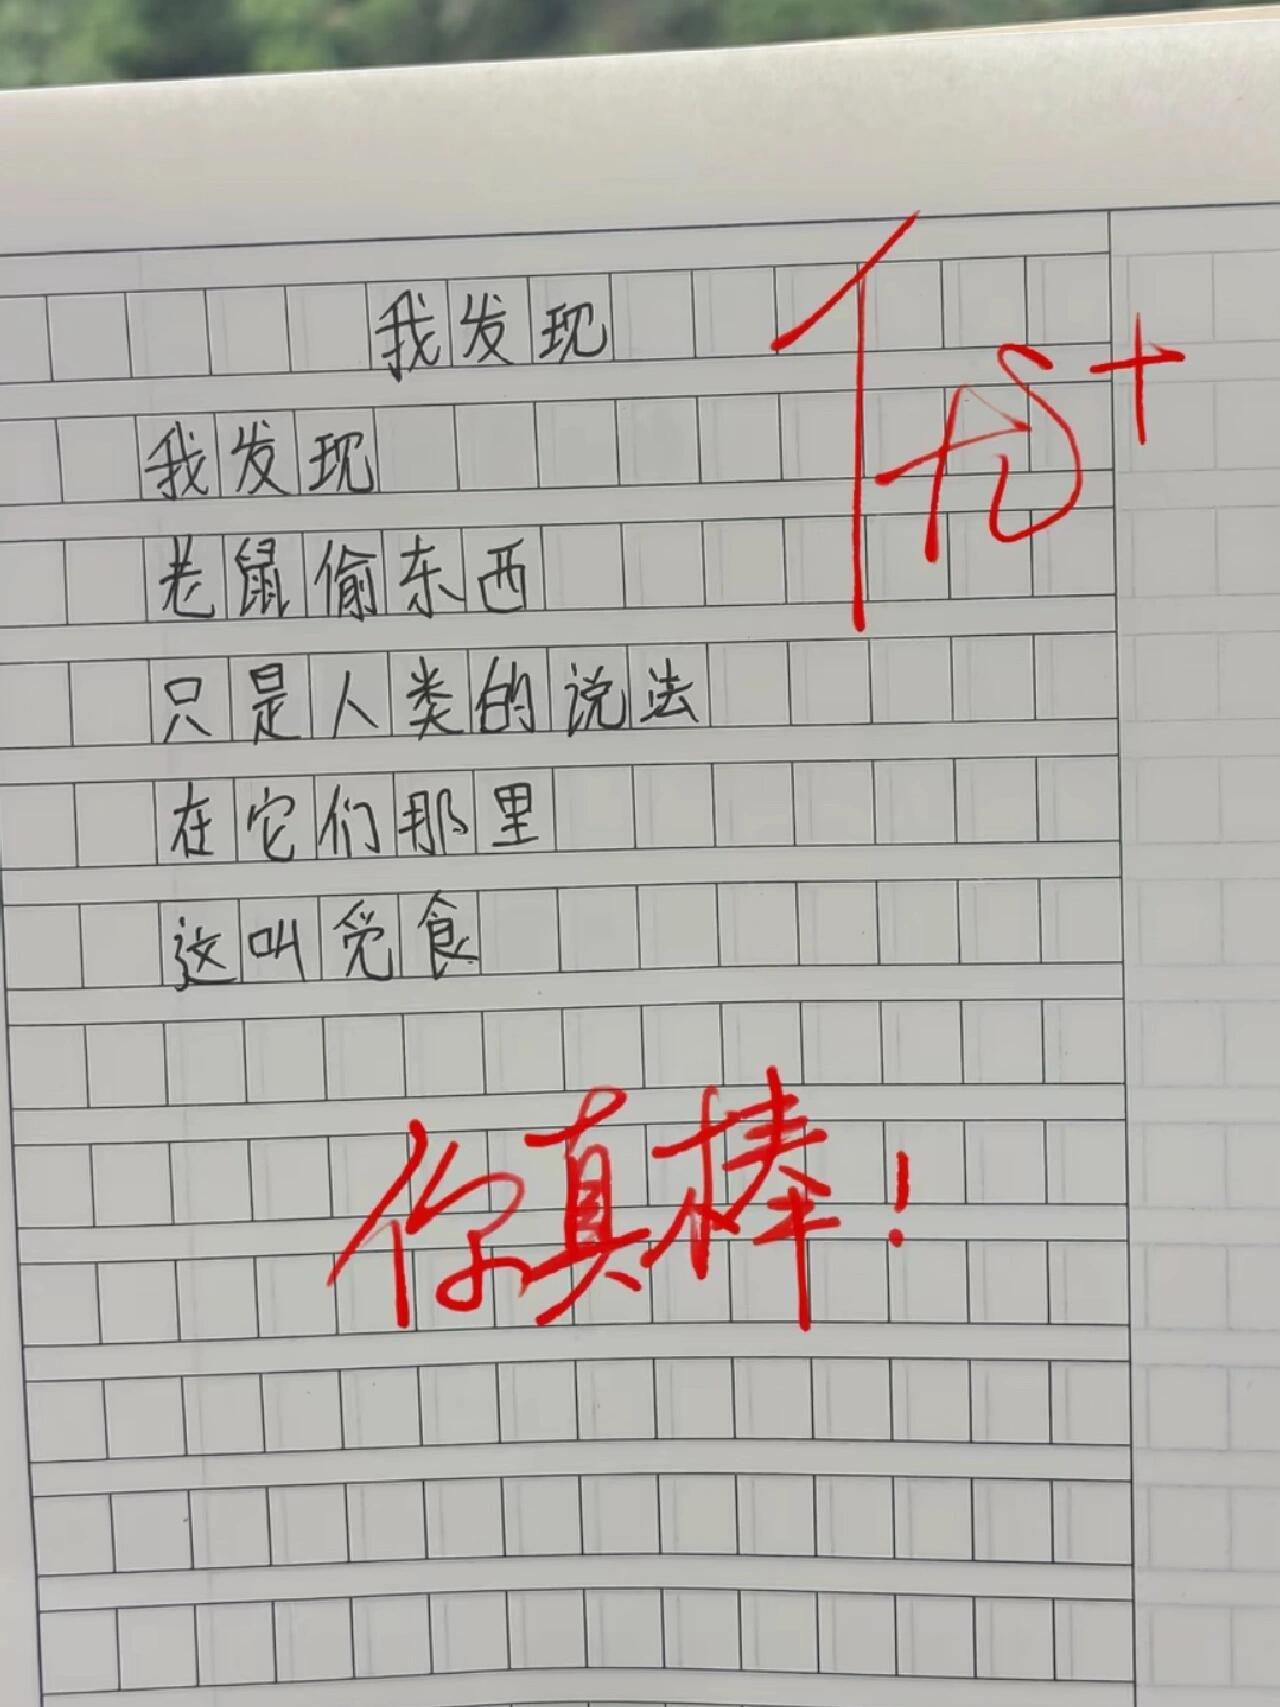 我发现
优+
我发现
老鼠偷东西
只是人类的说法
在它们那里
这叫觅食
你真棒！